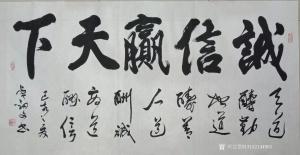 誠信贏天下
天道
酬勤
地道
酬善
人道
酬誠
商道
酬信
己亥夏